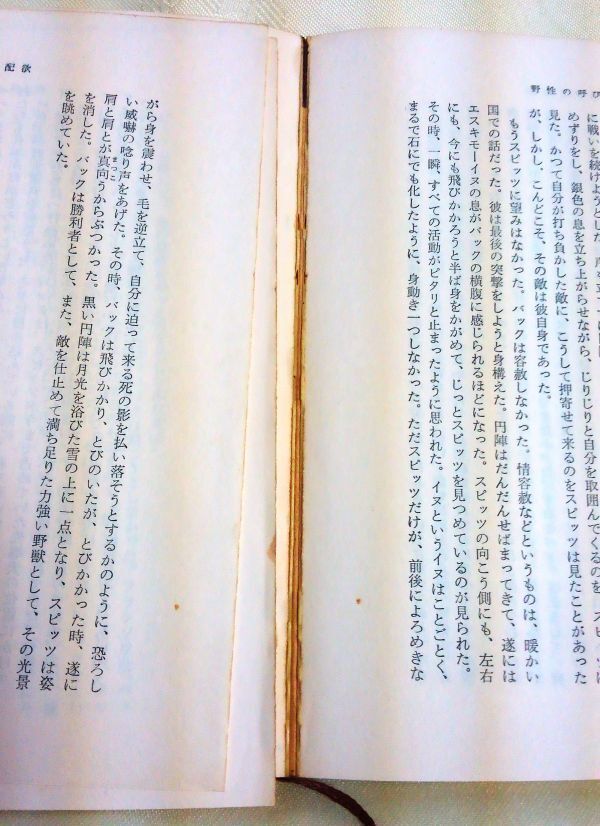 野性の呼び
に戦いを続けようとした。
めずりをし、銀色の息を立ち上がらせながら、じりじりと自分を取囲んでくるのを、スピッツは
見た。かつて自分が打ち負かした敵に、こうして押寄せて来るのをスピッツは見たことがあった
が、しかし、こんどこそ、その敵は彼自身であった。
もうスピッツに望みはなかった。バックは容赦しなかった。情容赦などというものは、暖かい
国での話だった。彼は最後の突撃をしようと身構えた。円陣はだんだんせばまってきて、遂には
エスキモーイヌの息がバックの横腹に感じられるほどになった。スピッツの向こう側にも、左右
にも、今にも飛びかかろうと半ば身をかがめて、じっとスピッツを見つめているのが見られた。
その時、一瞬、すべての活動がピタリと止まったように思われた。イヌというイヌはことごとく、
まるで石にでも化したように、身動き一つしなかった。ただスピッツだけが、前後によろめきな
欲配
がら身を震わせ、毛を逆立て、自分に迫って来る死の影を払い落そうとするかのように、恐ろし
い威嚇の唸り声をあげた。その時、バックは飛びかかり、とびのいたが、とびかかった時、遂に
肩と肩とが真向うからぶつかった。黒い円陣は月光を浴びた雪の上に一点となり、スピッツは姿
を消した。バックは勝利者として、また、敵を仕止めて満ち足りた力強い野獣として、その光景
を眺めていた。